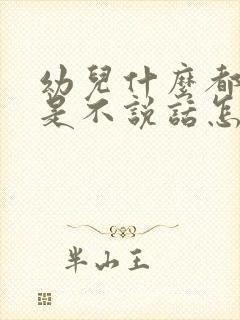 幼兒什麼都
是不說話怎
半山王